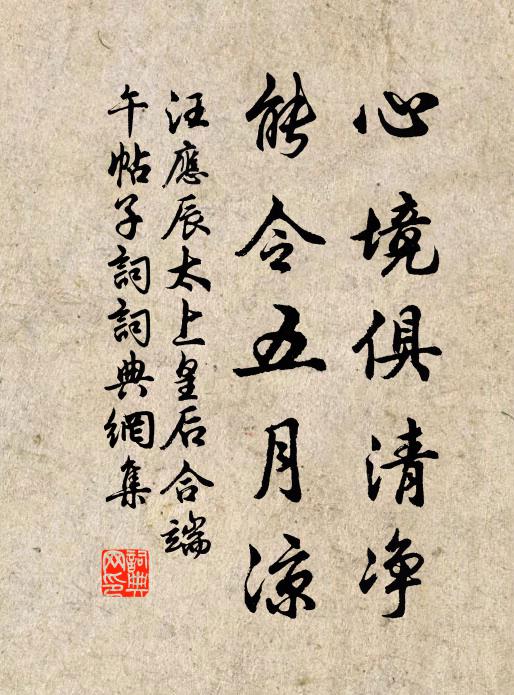 心境俱清净
能令五月凉
汪應辰太上皇后合端
午帖子詞詞典網集
詞典网印